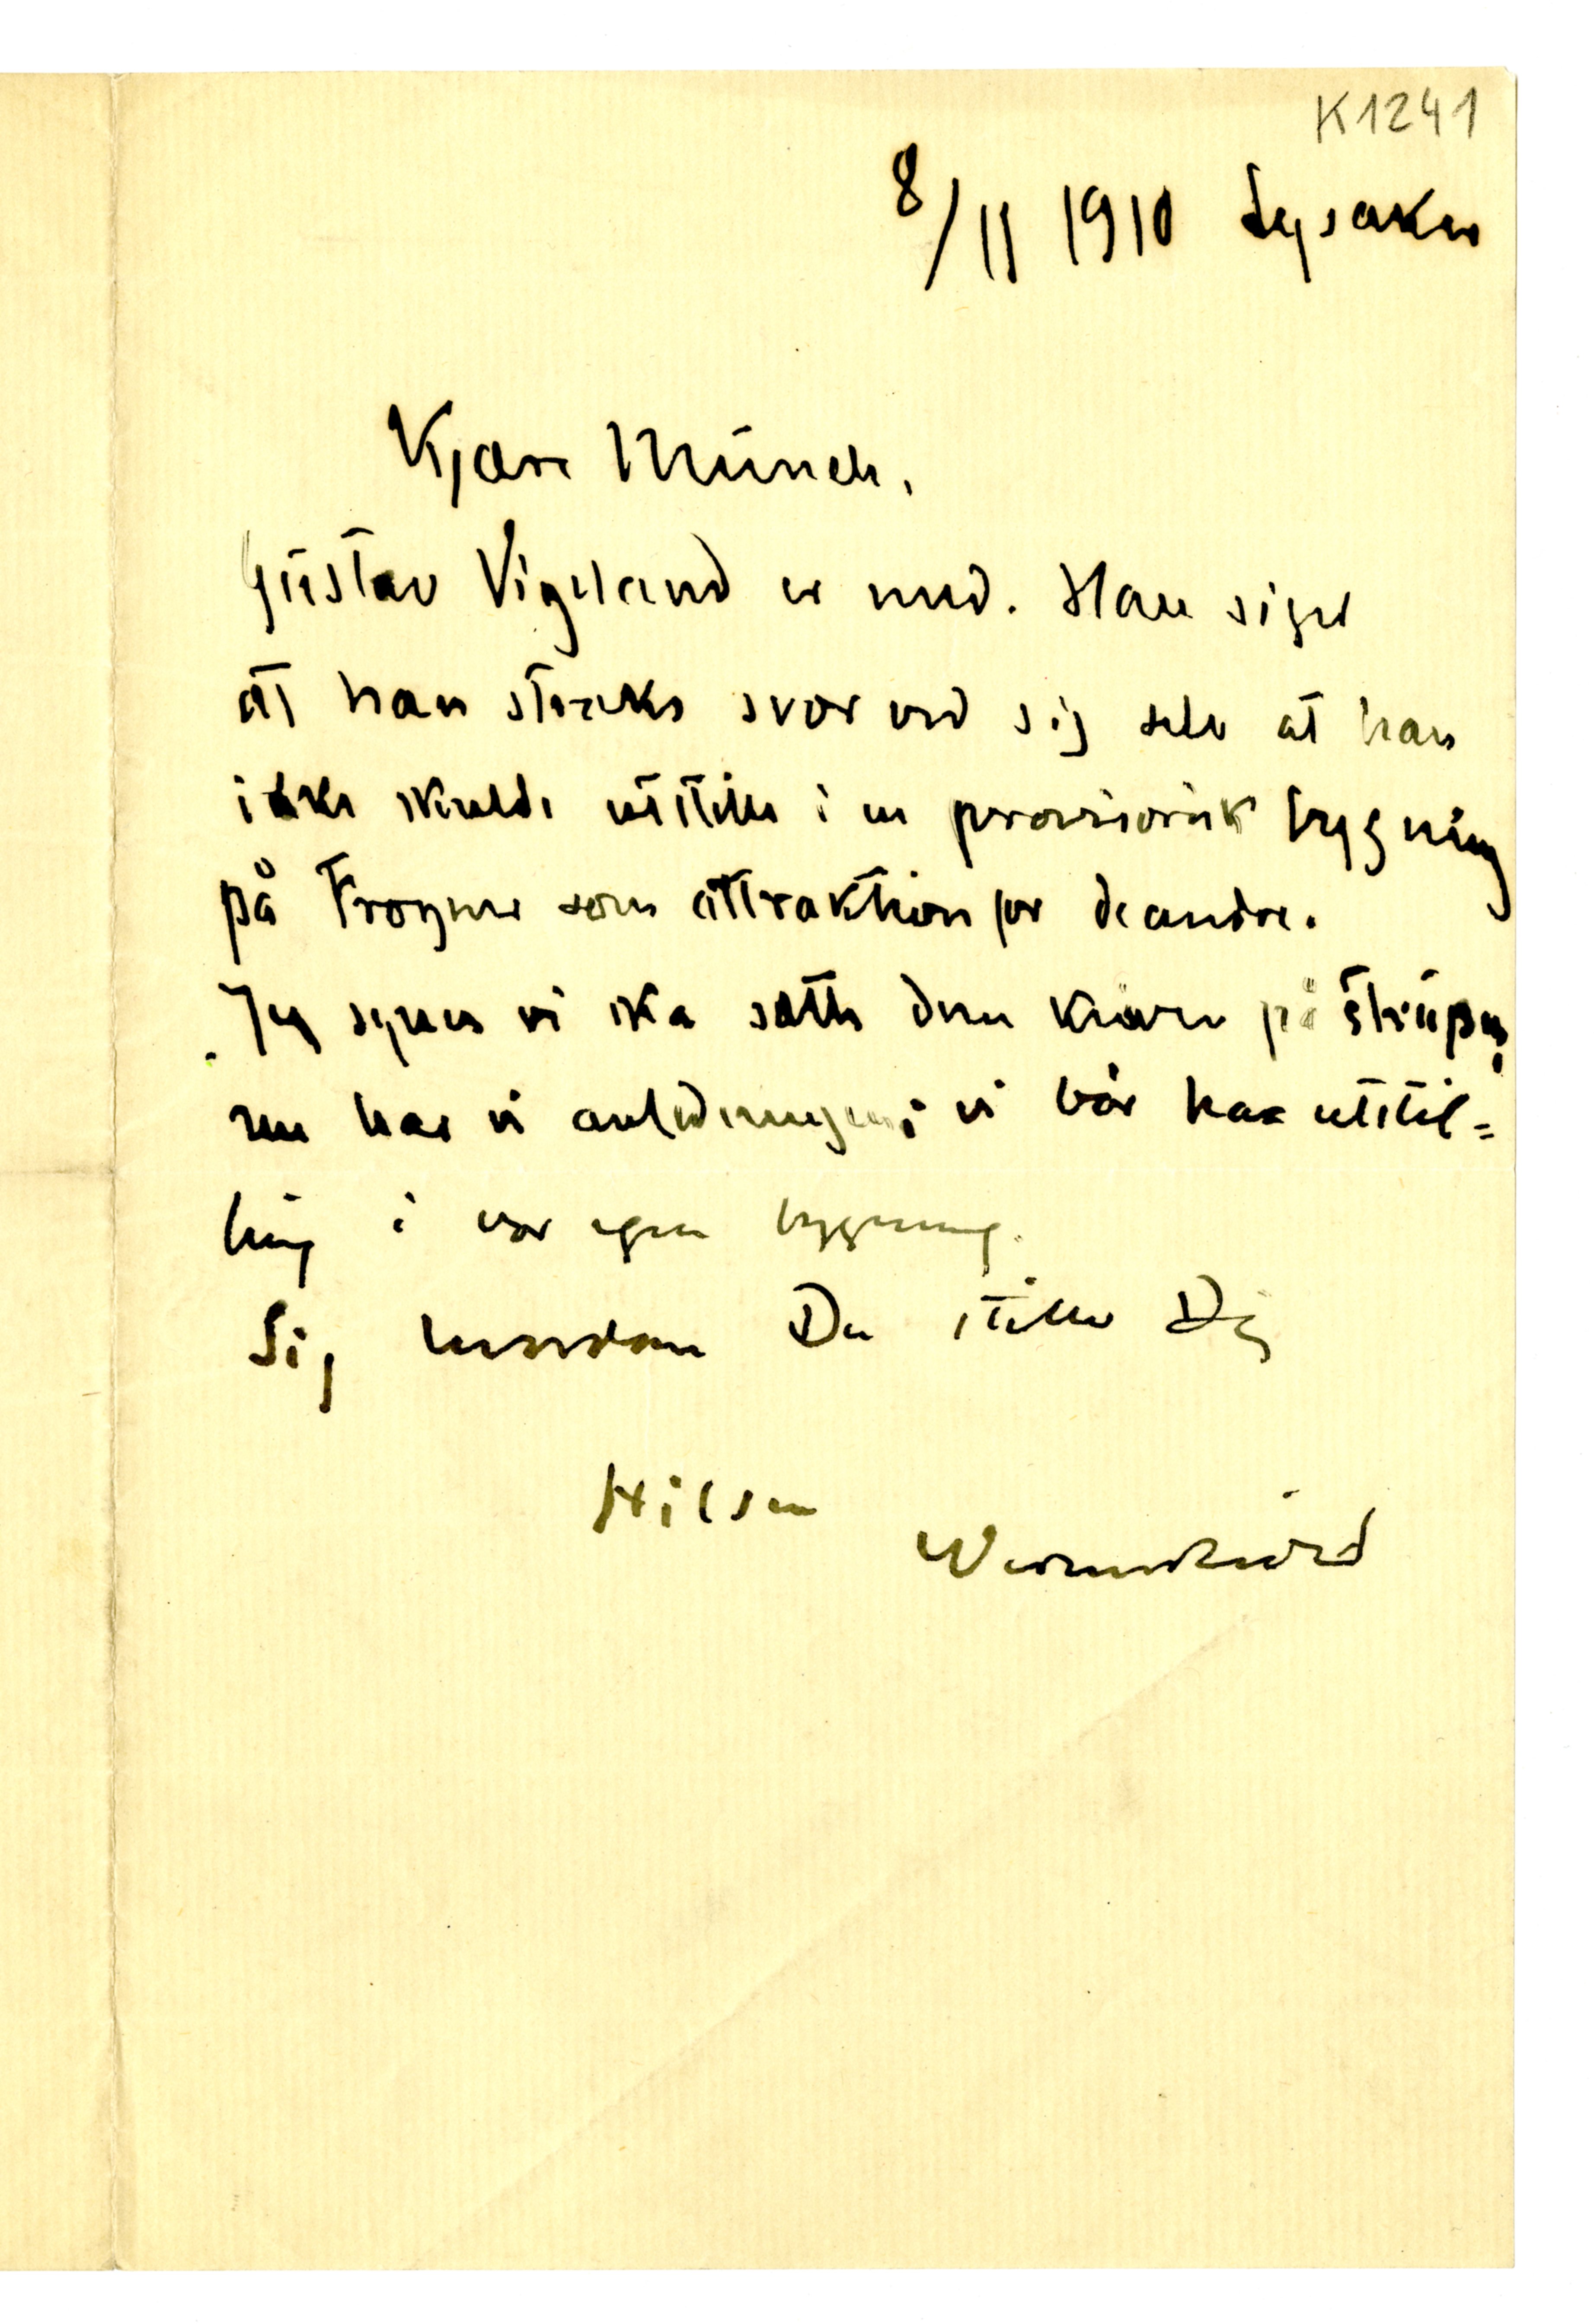 K1241
8/11 1910 Lysaker
Kjære Münch.
Gustav Vigeland er med. Han siger
at han straks svor ved sig selv at han
ikke skulde utstille i en provisorisk bygning
på Frogner som attraktion for de andre.
Jeg synes vi ska sætte dem kniven på strupen,
nu har vi anledningen; vi bør ha utstil=
ling i vor egen bygning.
Sig hvordan Du stiller Dig
Hilsen
Werenskiold